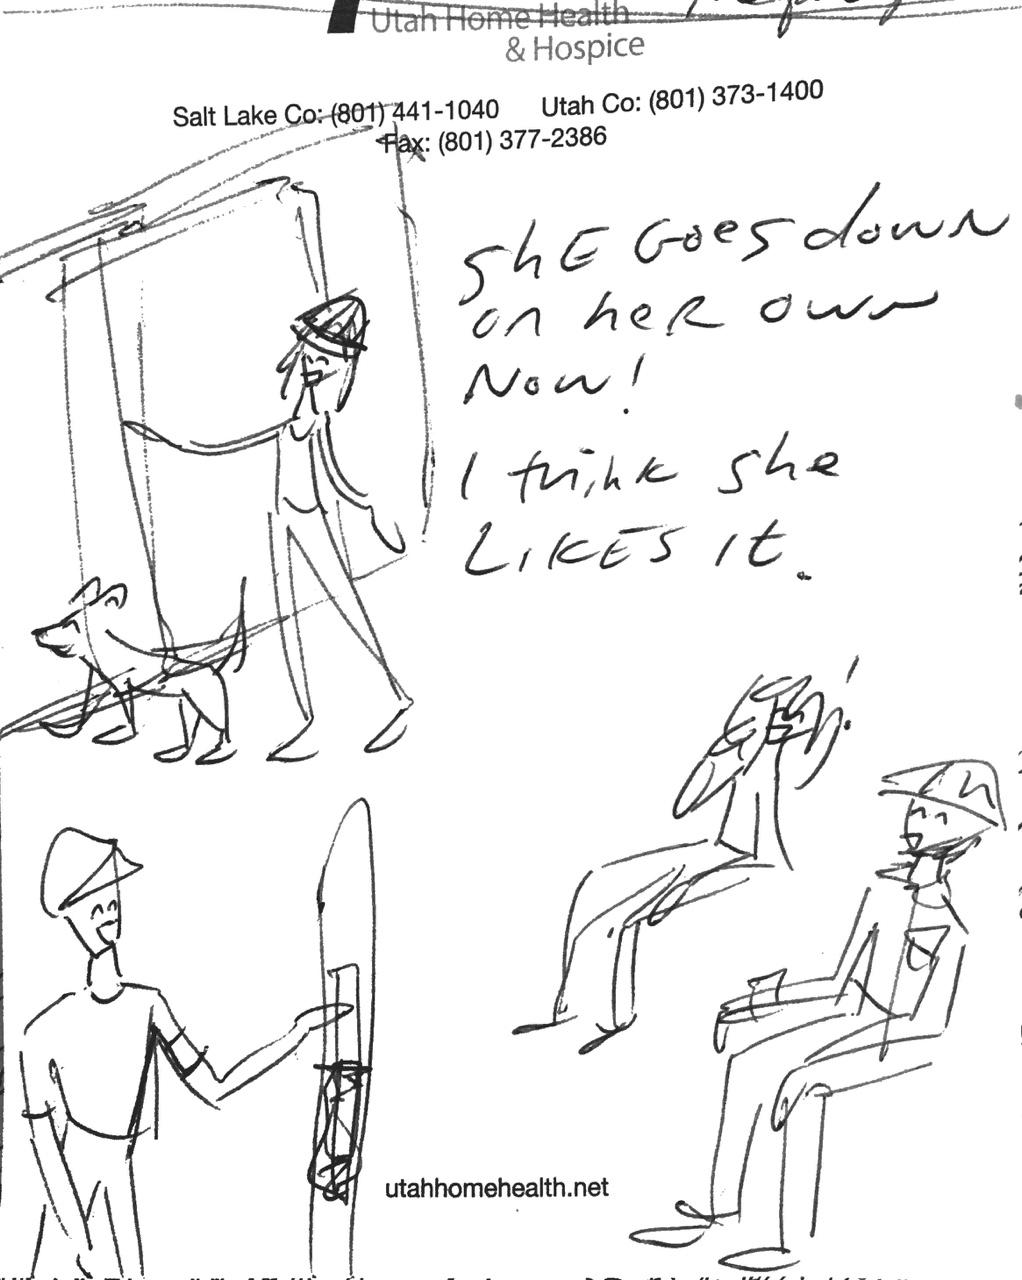 Utah Home Health
& Hospice
Salt Lake Co: (801) 441-1040 Utah Co: (801) 373-1400
Fax: (801) 377-2386
ShE GoES down
on heR own
Now!
I think she
LIKES It.
utahhomehealth.net